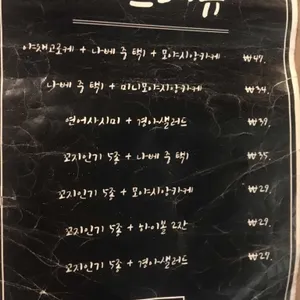 야채고로케 + 나베 중 택1 + 모야시앙카케 ₩47.
나베 중 택1 + 미니모야시앙카케 ₩34.
연어사시미 + 경아샐러드 ₩39.
꼬지인기 5종 + 나베 중 택1 ₩35.
꼬지인기 5종 + 모야시앙카케 ₩29.
꼬지인기 5종 + 하이볼 2잔 ₩29.
꼬지인기 5종 + 경아샐러드 ₩27.